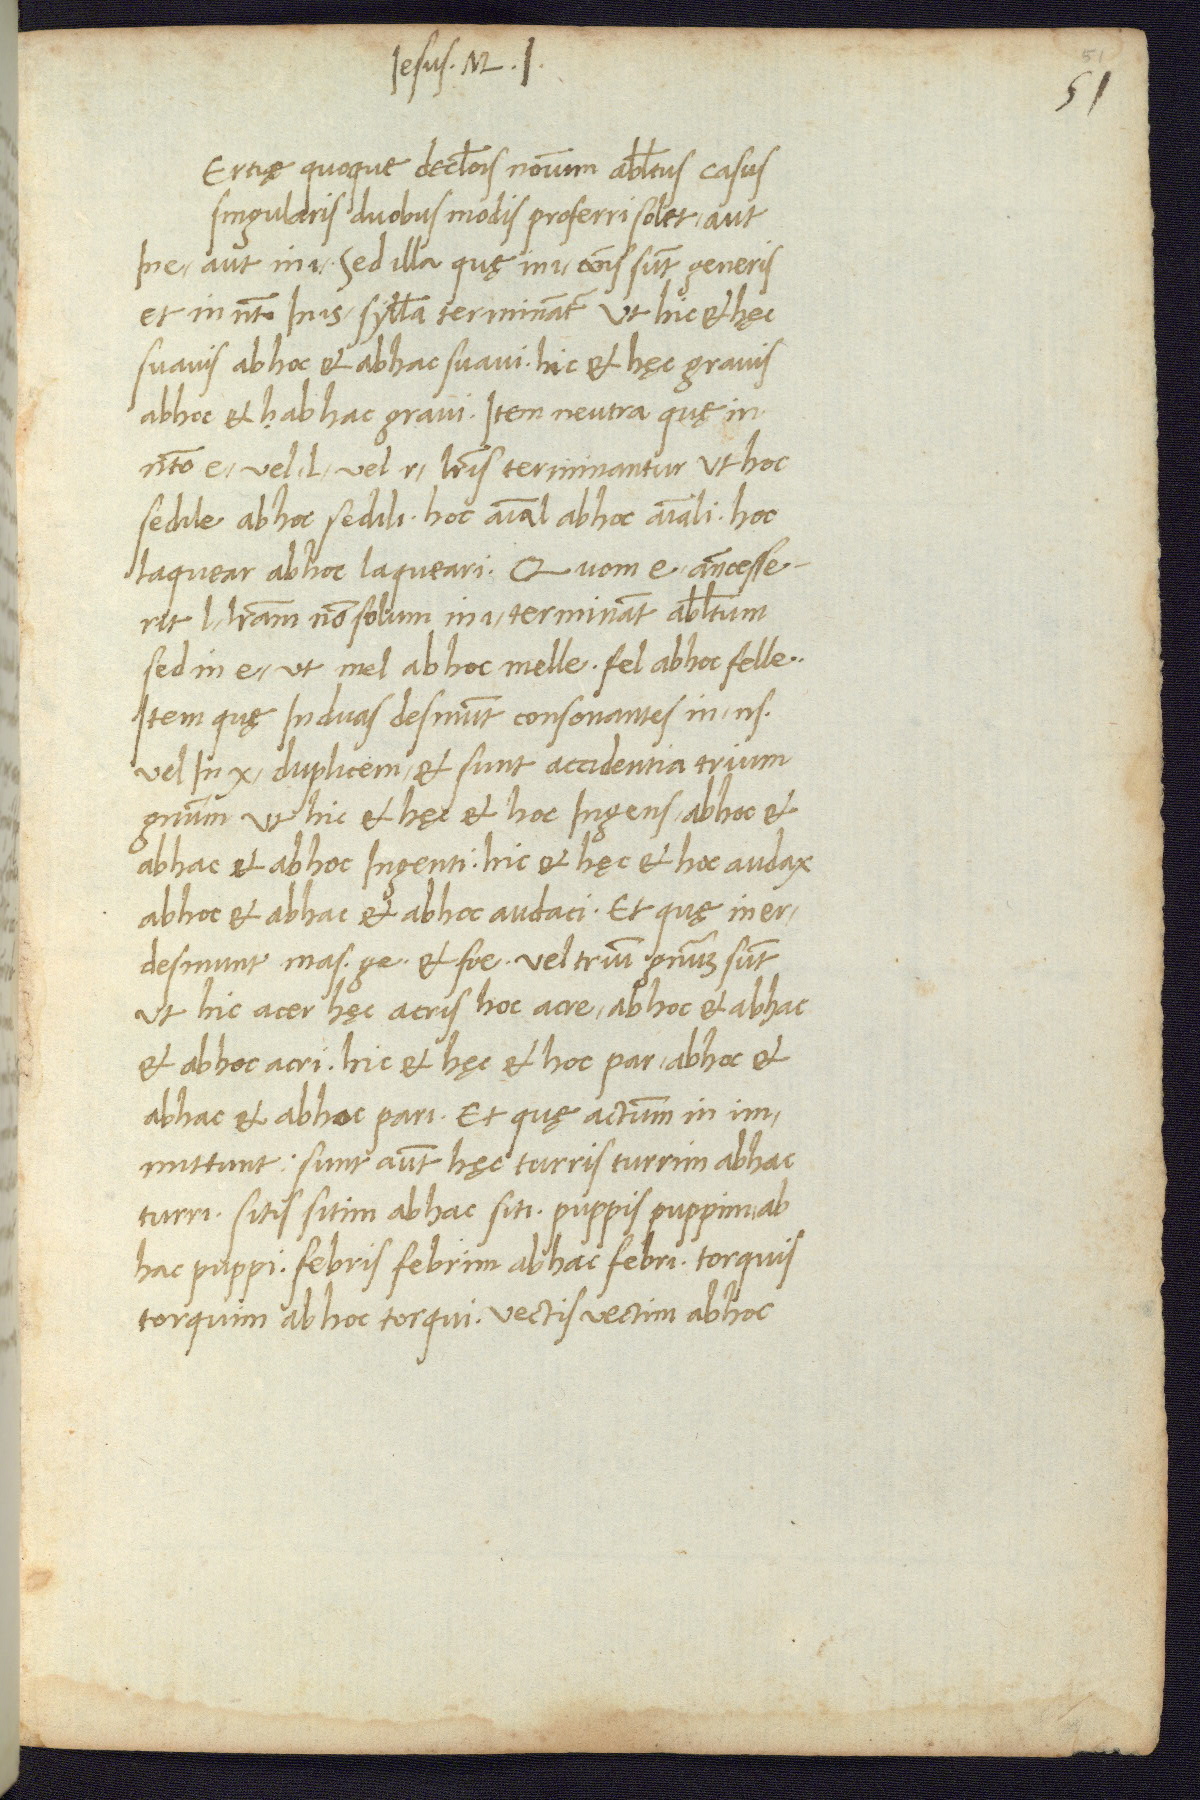 Iesus. M. I.
51
51
Ertię quoque decl̄ois nōuım abl̄tus casus
singularis duobus modis proferri solet, aut
In e, aut in i, Sed illa quę in i, cōis sūt generis
et in nt̄o In is, syll̄a terminānt̄ Vt hic & hęc
suauis abhoc & abhac suaui. hic & hęc grauis
abhoc & h abhac graui. Item neutra quę in
nt̄o e, vel. l, vel r, lr̄is terminantur Vt hoc
sedile abhoc sedili. hoc aīal abhoc aīali. hoc
laquear abhoc laqueari. Quom e, an̄cesse-
rit l, lr̄am nō solum in i, termināt abl̄tum
sed in e, vt mel abhoc melle. fel abhoc felle.
Item quę In duas desinūt consonantes in, ns.
vel In x, duplicem, & sunt accidentia trium
gn̄um Vt hic & hęc & hoc Ingens, abhoc &
abhac & abhoc Ingenti. hic & hęc & hoc audax
abhoc & abhac & abhoc audaci. Et quę in er,
desinunt mas. ge. & foe. vel triū gn̄uꝫ sūt
Vt hic acer hęc acris hoc acre, abhoc & abhac
& abhoc acri. hic & hęc & hoc par, abhoc &
abhac & abhoc pari. Et quę actūm in im,
mittunt: sunt aūt hęc turris turrim abhac
turri. sitis sitim abhac siti. puppis puppim, ab
hac puppi. febris febrim abhac febri. torquis
torquim abhoc torqui. vectis vectim abhoc